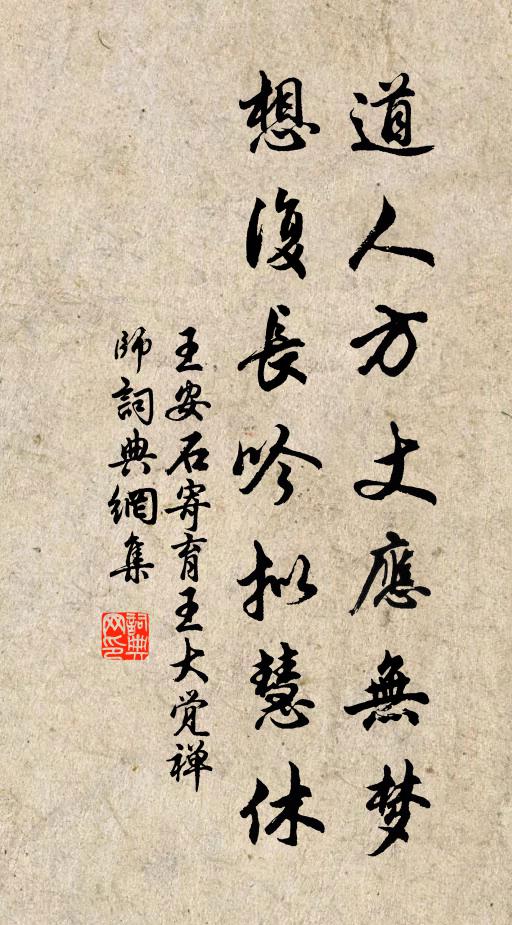 道人方丈應無梦
想復長吟拟慧休
王安石寄育王大觉禅
師詞典網集
詞典
网印